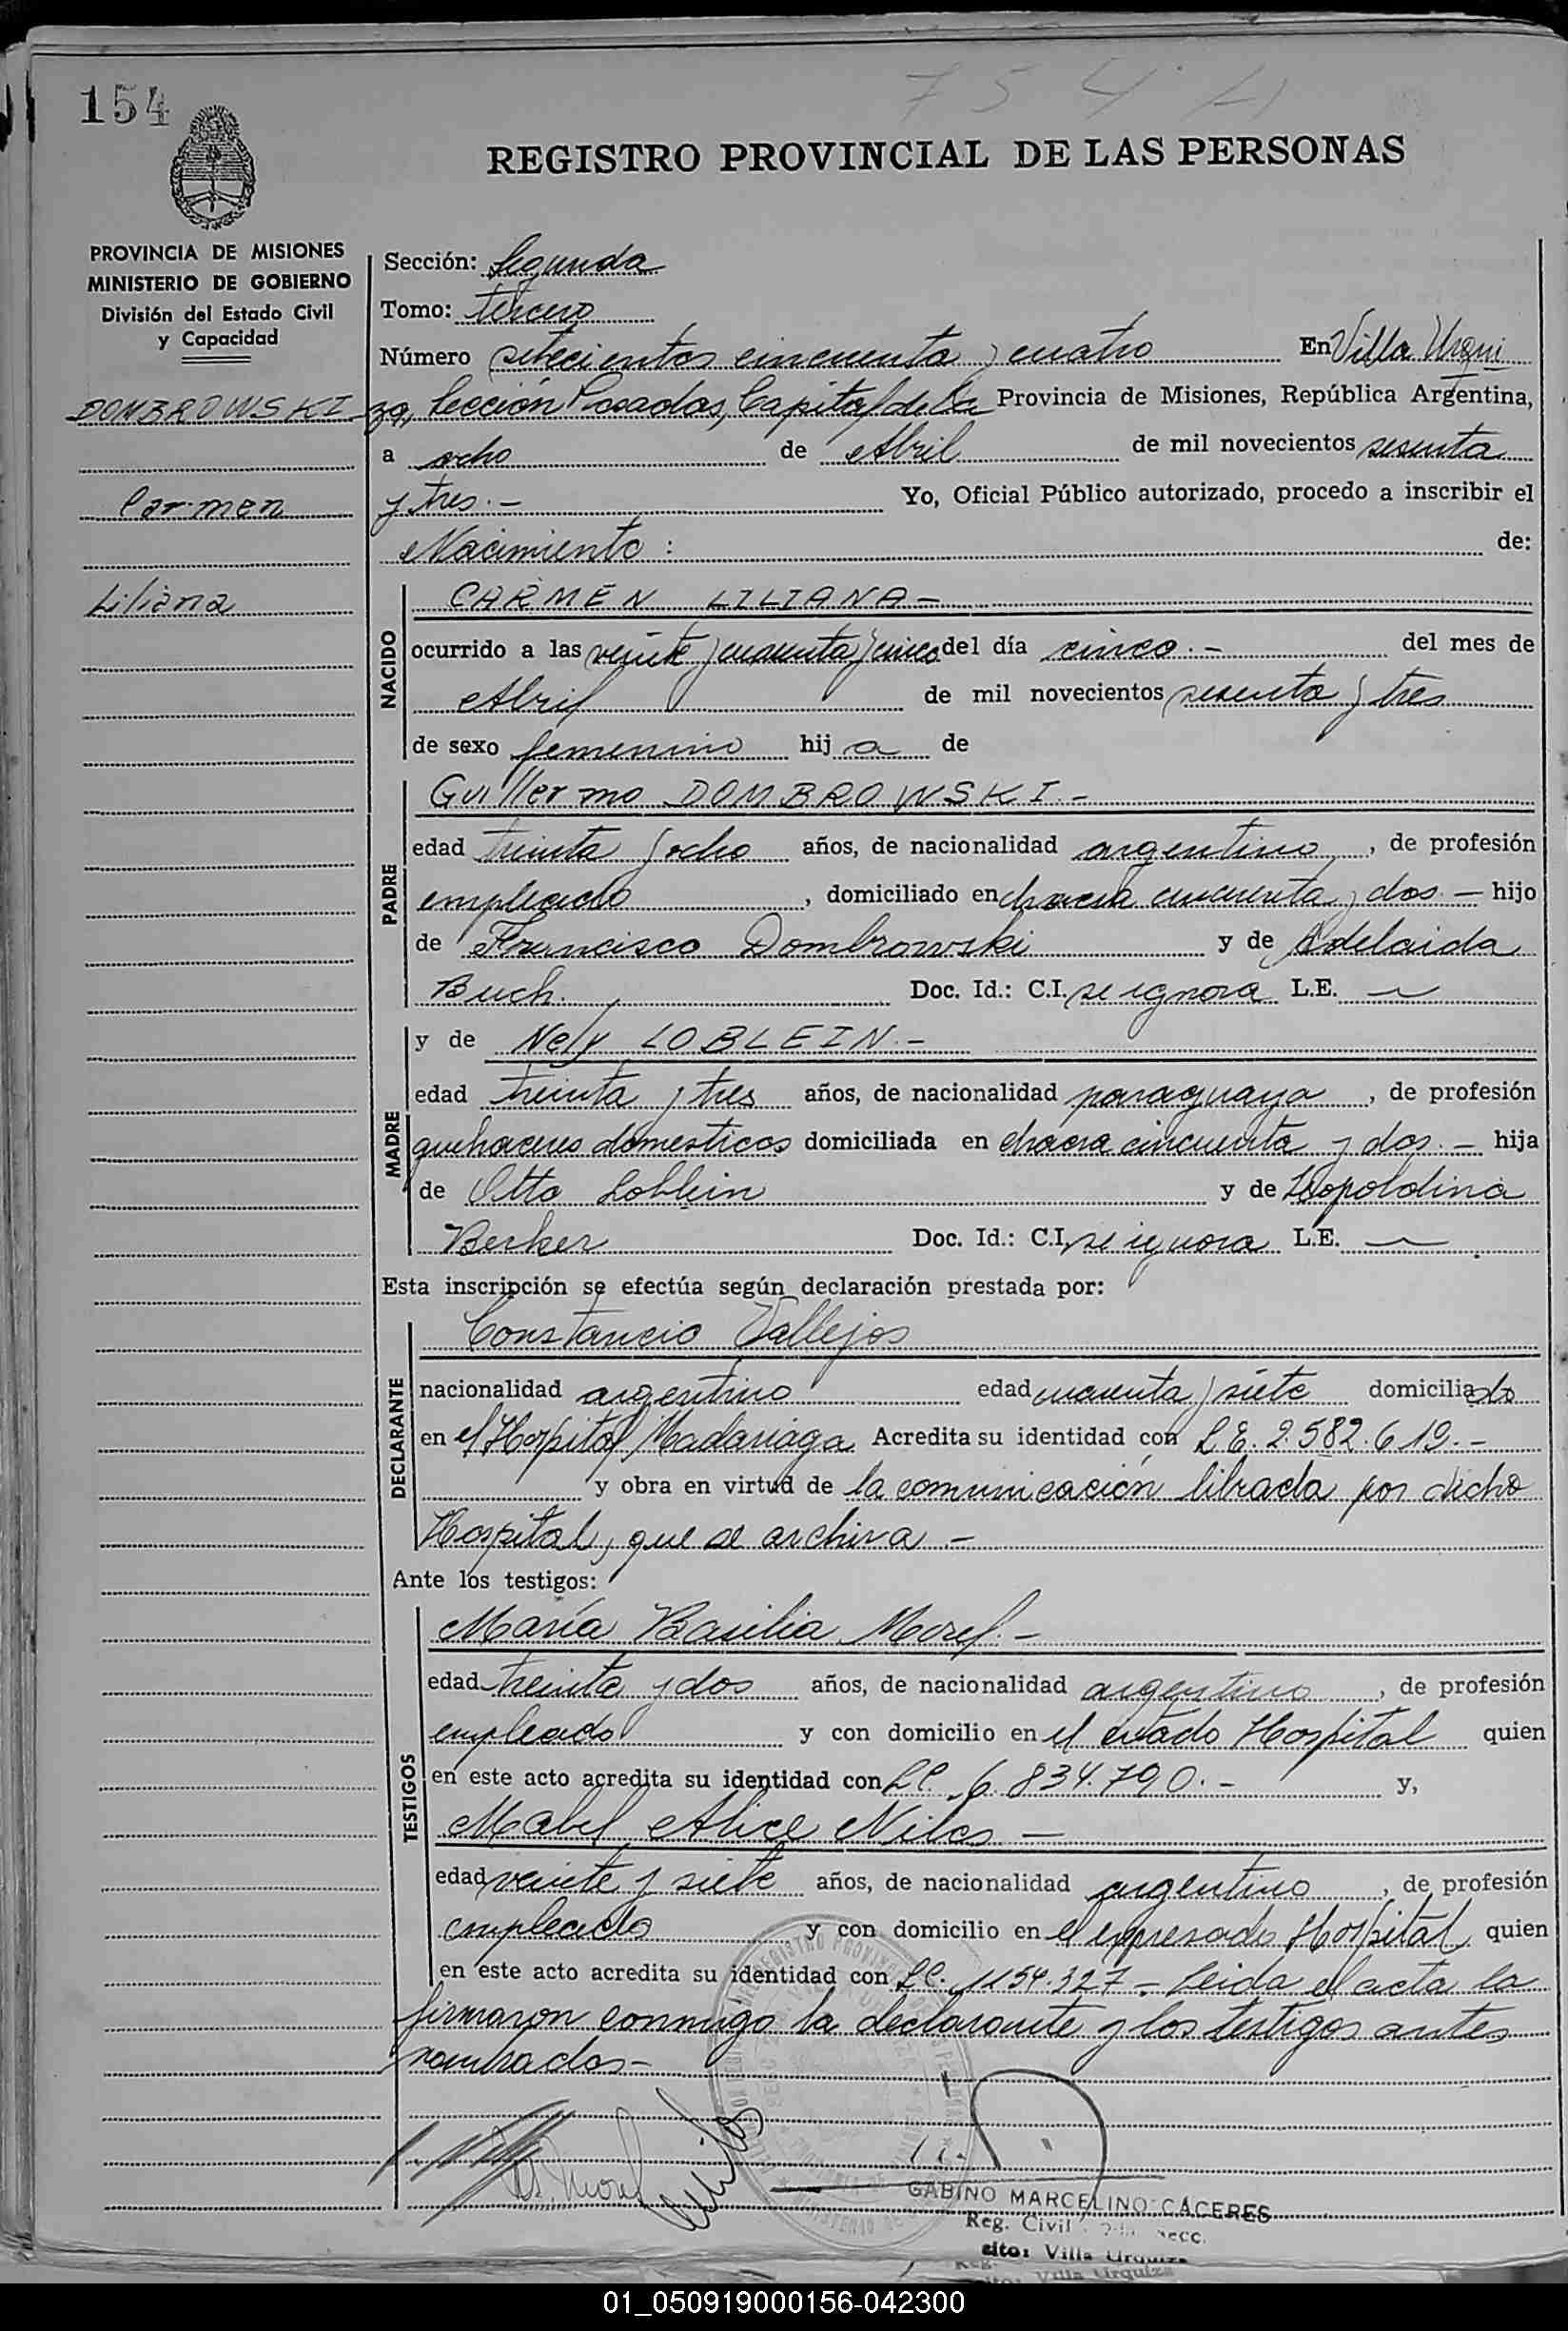 154
754
REGISTRO PROVINCIAL DE LAS PERSONAS
PROVINCIA DE MISIONES
MINISTERIO DE GOBIERNO
División del Estado Civil
y Capacidad
DOMBROWSKI
Carmen
Liliana
Sección: Segunda
Tomo: tercero
Número setecientos cincuenta y cuatro En Villa Urqui
za, Sección Posadas, Capital de la Provincia de Misiones, República Argentina,
a ocho de Abril de mil novecientos sesenta
y tres.- Yo, Oficial Público autorizado, procedo a inscribir el
Nacimiento: de:
NACIDO
CARMEN LILIANA-
ocurrido a las veinte y cuarenta y cinco del día cinco.- del mes de
Abril de mil novecientos sesenta y tres
de sexo femenino hij a de
PADRE
Guillermo DOMBROWSKI.-
edad treinta y ocho años, de nacionalidad argentino, de profesión
empleado, domiciliado en chacra cincuenta y dos.- hijo
de Francisco Dombrowski y de Adelaida
Buch. Doc. Id.: C.I. se ignora L.E. —
MADRE
y de Nely LOBLEIN.-
edad treinta y tres años, de nacionalidad paraguaya, de profesión
quehaceres domesticos domiciliada en chacra cincuenta y dos.- hija
de Otto Loblein y de Leopoldina
Berker Doc. Id.: C.I. se ignora L.E. —
Esta inscripción se efectúa según declaración prestada por:
DECLARANTE
Constancio Vallejos
nacionalidad argentino edad cuarenta y siete domiciliado
en el Hospital Madariaga Acredita su identidad con L.E. 2.582.619.-
y obra en virtud de la comunicación librada por dicho
Hospital, que se archiva.-
Ante los testigos:
TESTIGOS
María Basilia Morel.-
edad treinta y dos años, de nacionalidad argentino, de profesión
empleado y con domicilio en el citado Hospital quien
en este acto acredita su identidad con L.C. 6.834.790.- y,
Mabel Alice Niles -
edad veinte y siete años, de nacionalidad argentino, de profesión
empleado y con domicilio en el expresado Hospital quien
en este acto acredita su identidad con L.C. 1154.327- Leida el acta la
firmaron conmigo la declarante y los testigos antes
nombrados-
GABINO MARCELINO CACERES
Reg. Civil
sito: Villa Urquiza
Villa Urquiza
01_050919000156-042300